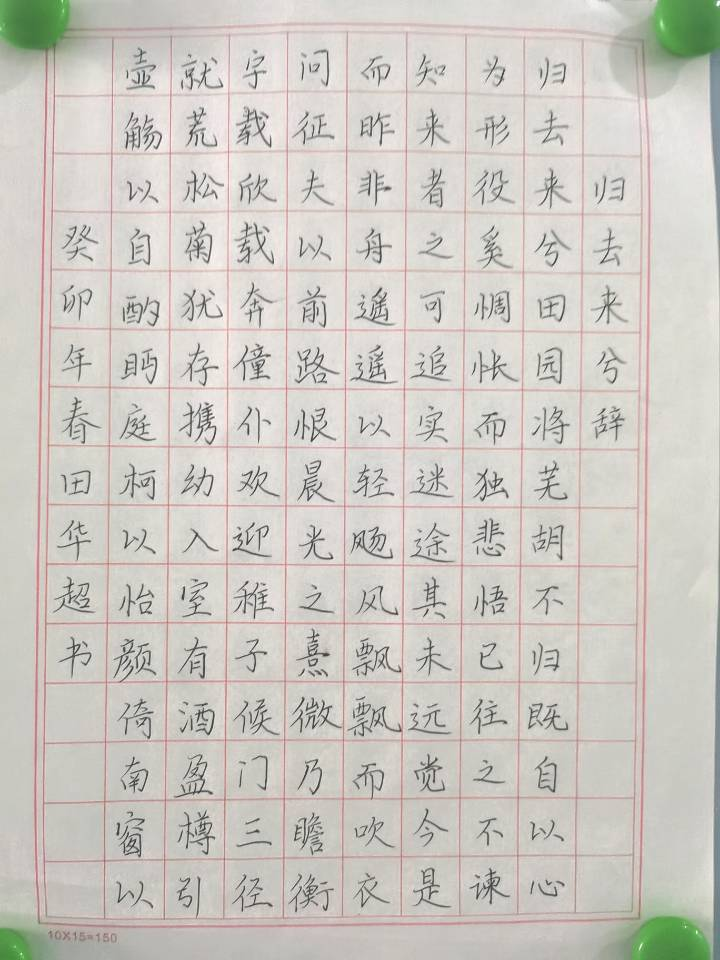 归去来兮辞
归去来兮田园将芜胡不归既自以心
为形役奚惆怅而独悲悟已往之不谏
知来者之可追实迷途其未远觉今是
而昨非舟遥遥以轻飏风飘飘而吹衣
问征夫以前路恨晨光之熹微乃瞻衡
字载欣载奔僮仆欢迎稚子候门三径
就荒松菊犹存携幼入室有酒盈樽引
壶觞以自酌眄庭柯以怡颜倚南窗以
癸卯年春田华超书
10X15=150